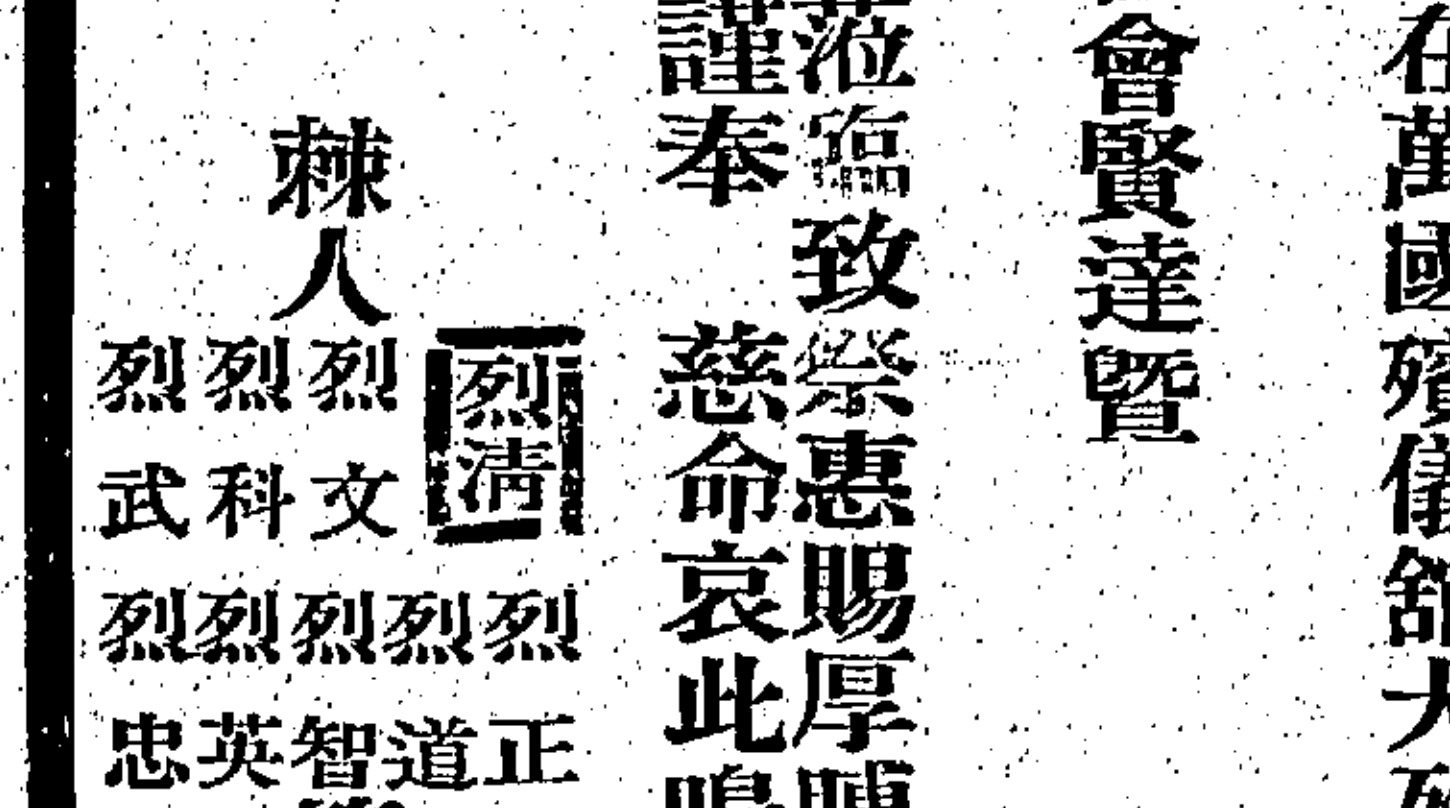 在萬國殯儀舘大殮
會賢達曁
蒞臨致祭惠賜厚賻
謹奉 慈命哀此鳴
棘人
烈清
烈文
烈科
烈武
烈正
烈道
烈智
烈英
烈忠